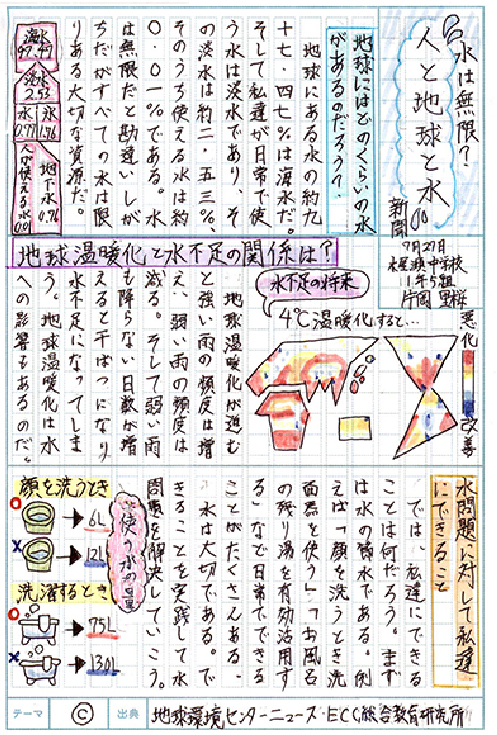 水は無限?
人と地球と水
新聞
7月27日
中学校
1年5組
片岡
地球にはどのくらいの水
があるのだろう?
地球にある水の約九
十七・四七%は海水だ。
そして私達が日常で使
う水は淡水であり、そ
の淡水は約二・五三%、
そのうち使える水は約
〇・〇一%である。水
は無限だと勘違いしが
ちだがすべての水は限
りある大切な資源だ。
海水
97.47
淡水
2.53
氷
1.76
氷
0.77
地下水
0.76
人が使える水
0.01
地球温暖化と水不足の関係は?
地球温暖化が進む
と強い雨の頻度は増
え、弱い雨の頻度は
減る。そして弱い雨
も降らない日数が増
えると干ばつになり
水不足になってしま
う。地球温暖化は水
への影響もあるのだ。
水不足の将来
4℃温暖化すると…
悪化
改善
水問題に対して私達
にできること
では、私達にできる
ことは何だろう。まず
は水の節水である。例
えば「顔を洗うとき洗
面器を使う」「お風呂
の残り湯を有効活用す
る」など日常でできる
ことがたくさんある。
水は大切である。で
きることを実践して水
問題を解決していこう。
使う水の量
顔を洗うとき
6L
12L
洗濯するとき
75L
130L
テーマ
C
出典
地球環境センターニュース・ECC総合教育研究所